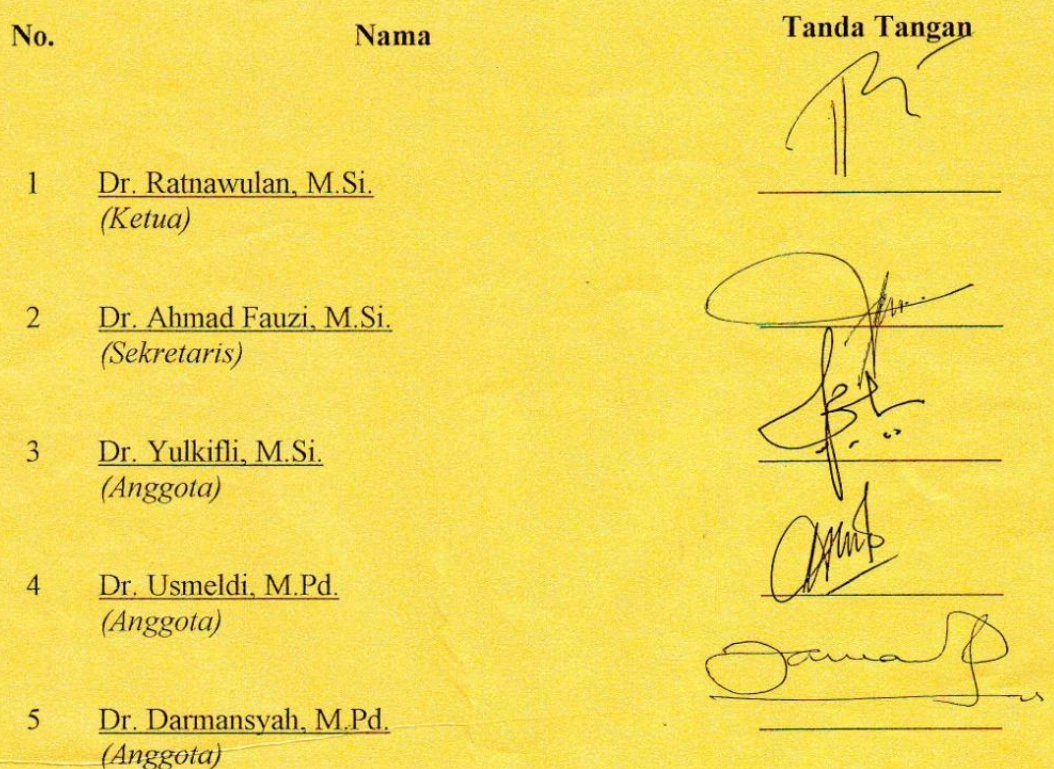 No. Nama Tanda Tangan
1 Dr. Ratnawulan, M.Si.
(Ketua)
2 Dr. Ahmad Fauzi, M.Si.
(Sekretaris)
3 Dr. Yulkifli, M.Si.
(Anggota)
4 Dr. Usmeldi, M.Pd.
(Anggota)
5 Dr. Darmansyah, M.Pd.
(Anggota)